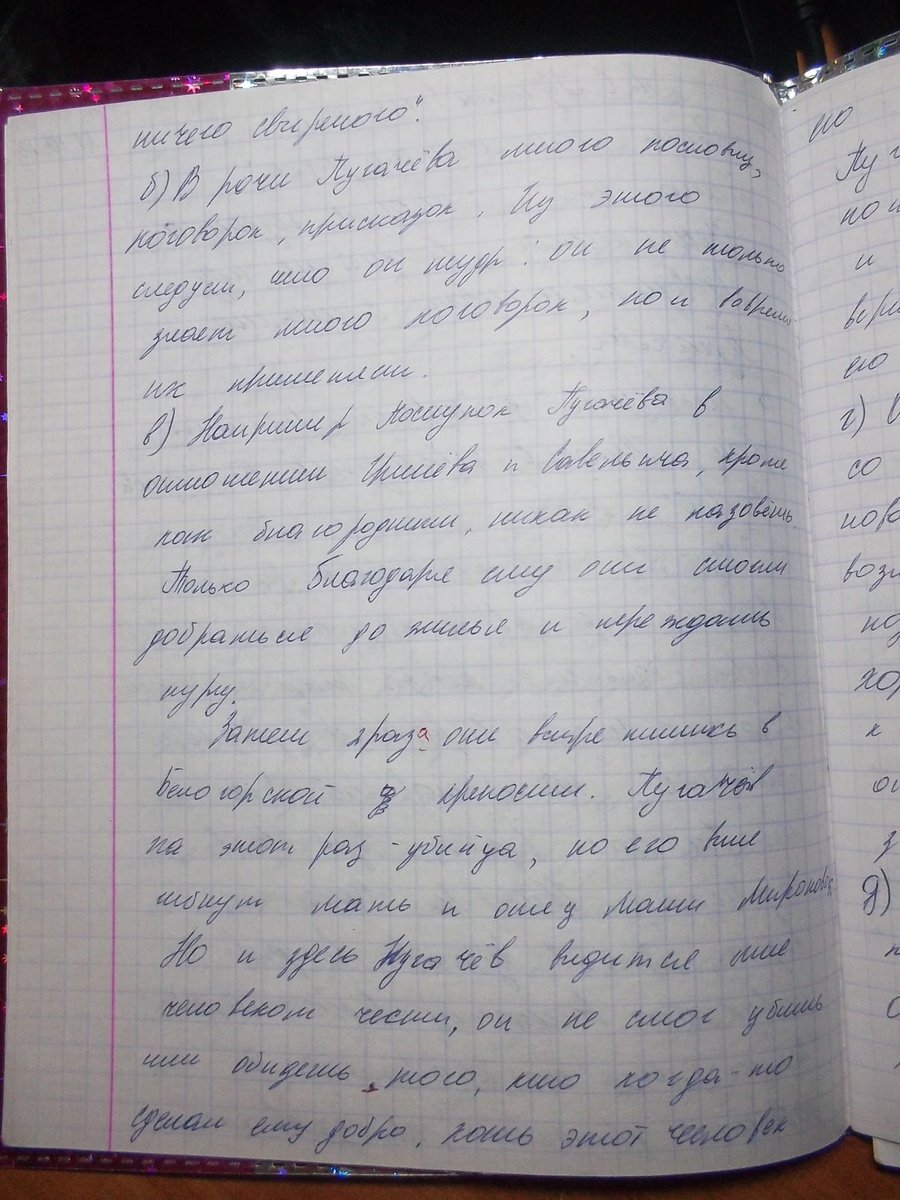 ничего свирепого".
б) В речи Пугачёва много пословиц,
поговорок, присказок. Из этого
следует, что он мудр: он не только
знает много поговорок, но и вовремя
их применяет.
в) Например Поступок Пугачёва в
отношении Гринёва и Савельича, кроме
как благородным, никак не назовёшь.
Только благодаря ему они смогли
добраться до жилья и переждать
пургу.
Затем гроза они встретились в
Белогорской крепости. Пугачёв
на этот раз - убийца, по его вине
гибнут мать и отец Маши Мироновой.
Но и здесь Пугачёв видится мне
человеком чести, он не смог убить
или обидеть, того, кто когда-то
сделал ему добро, хоть этот человек
но
Пу
и
г)
со
к
з
д)